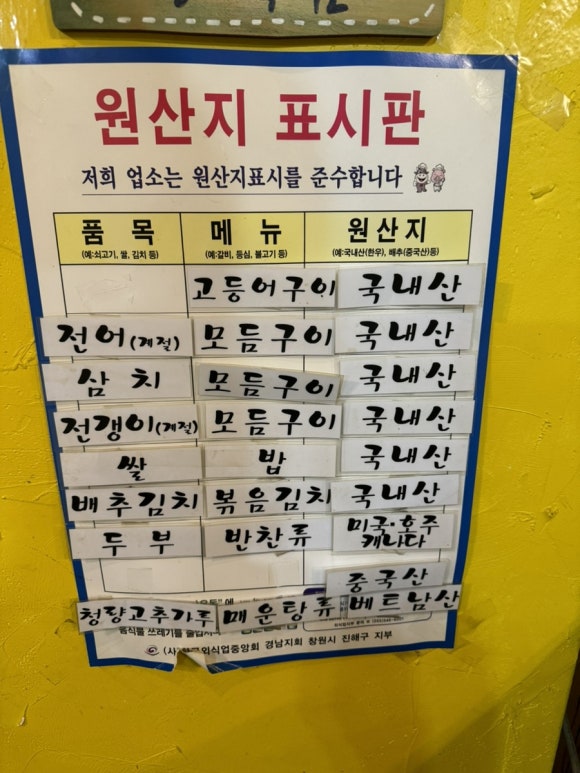 원산지 표시판
저희 업소는 원산지표시를 준수합니다
품목 메뉴 원산지
(예:쇠고기, 쌀, 김치 등) (예:갈비, 등심, 불고기 등) (예:국내산(한우), 배추(중국산)등)
고등어구이 국내산
전어(계절) 모듬구이 국내산
삼치 모듬구이 국내산
전갱이(계절) 모듬구이 국내산
쌀 밥 국내산
배추김치 볶음김치 국내산
두부 반찬류 미국·호주
캐나다
중국산
청량고추가루 매운탕류 베트남산
음식물 쓰레기를 줄입시다
(사)한국외식업중앙회 경남지회 창원시 진해구 지부